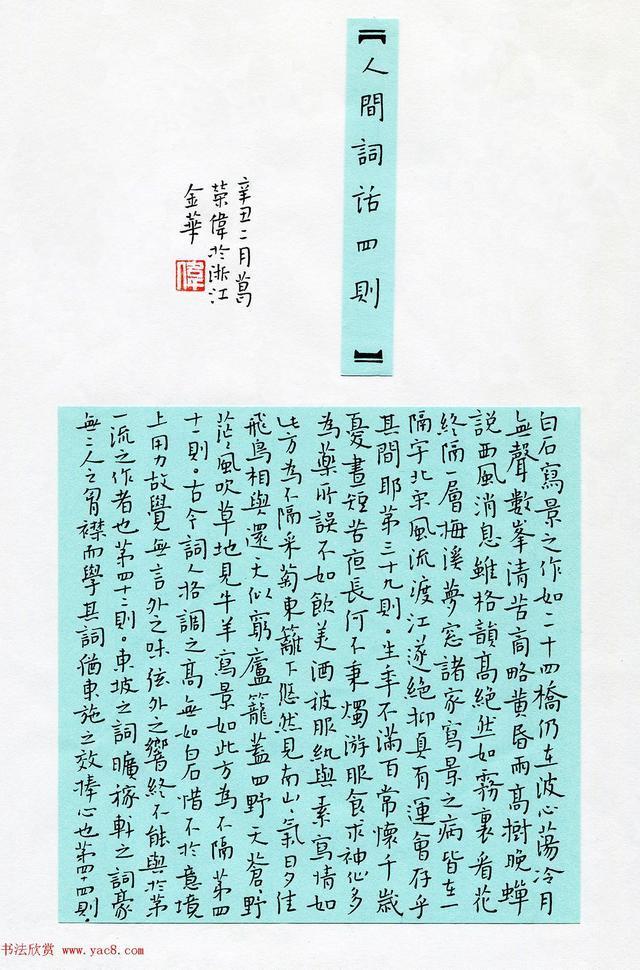 【人間詞话四則】
辛丑二月葛
榮偉於浙江
金華
偉
白石寫景之作如二十四橋仍在波心蕩冷月
無聲數峯清苦商略黄昏雨高樹晚蟬
説西風消息雖格韻高絕然如霧裏看花
終隔一層梅溪夢窓諸家寫景之病皆在一
隔字北宋風流渡江遂絕抑真有運會存乎
其間耶第三十九則。生年不滿百常懷千歲
憂晝短苦夜長何不秉燭游服食求神仙多
為藥所誤不如飲美酒被服紈與素寫情如
此方為不隔采菊東籬下悠然見南山山氣日夕佳
飛鳥相與還天似穹廬籠蓋四野天蒼野
茫風吹草地見牛羊寫景如此方為不隔第四
十一則。古今詞人格調之高無如白石惜不於意境
上用力故覺無言外之味弦外之響終不能與於第
一流之作者也第四十二則。東坡之詞曠稼軒之詞豪
無二人之胷襟而學其詞猶東施之效捧心也第四十四則。
书法欣赏 www.yac8.com